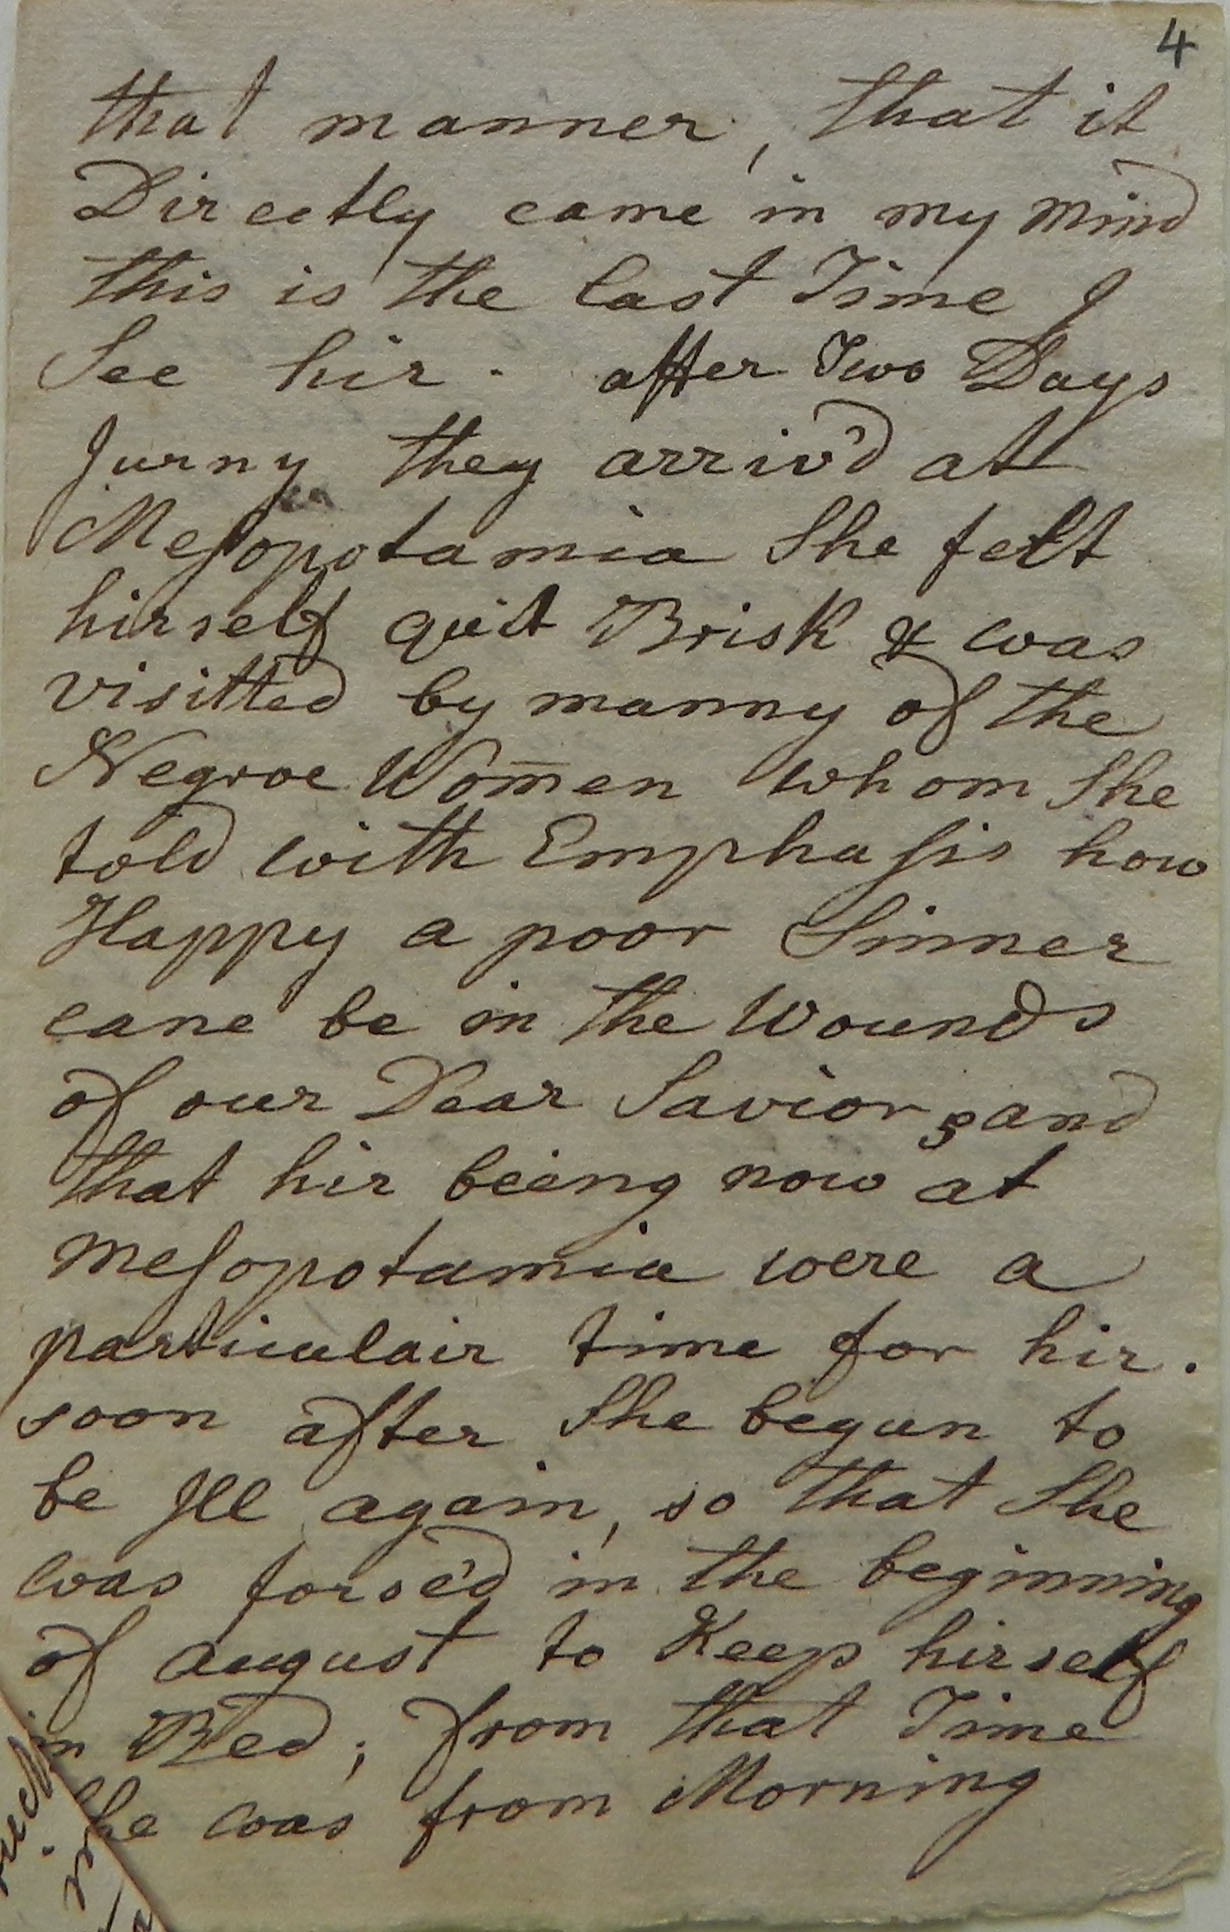 4
that manner, that it
Directly came in my mind
this is the last Time I
See hir. after Two Days
Jurny they arriv'd at
Mesopotamia She felt
hirself quit Brisk & was
visitted by manny of the
Negroe Women whom She
told with Emphasis how
Happy a poor Sinner
cane be in the Wounds
of our Dear Savior, and
that hir being now at
mesopotamia were a
particulair time for hir.
soon after She begun to
be Ill again, so that She
was forse'd in the beginning
of august to Keep hirself
in Bed; from that Time
She was from Morning